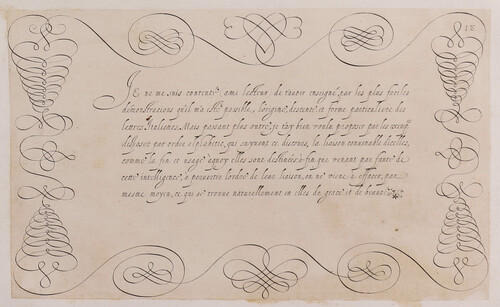 18
JE ne me suis contenté, ami lecteur de t'avoir enseigné, par les plus faciles
démonstrations qu'il m'a esté possible, l'origine, descente, et forme particuliere des
lettres Italienes. Mais passant plus outre, je t'ay bien voulu proposer par les
disposez par ordre alphabetic, qui suyvent ce discours, la liaison convenable d'icelles,
comme la fin et usage auquel elles sont destinées: à fin que venant par faute de
cette intelligence, a pervertir l'ordre de leur liaison, on ne viene à effacer, par
mesme moyen, ce qui se trouve naturellement en elles de grace, et de beauté.